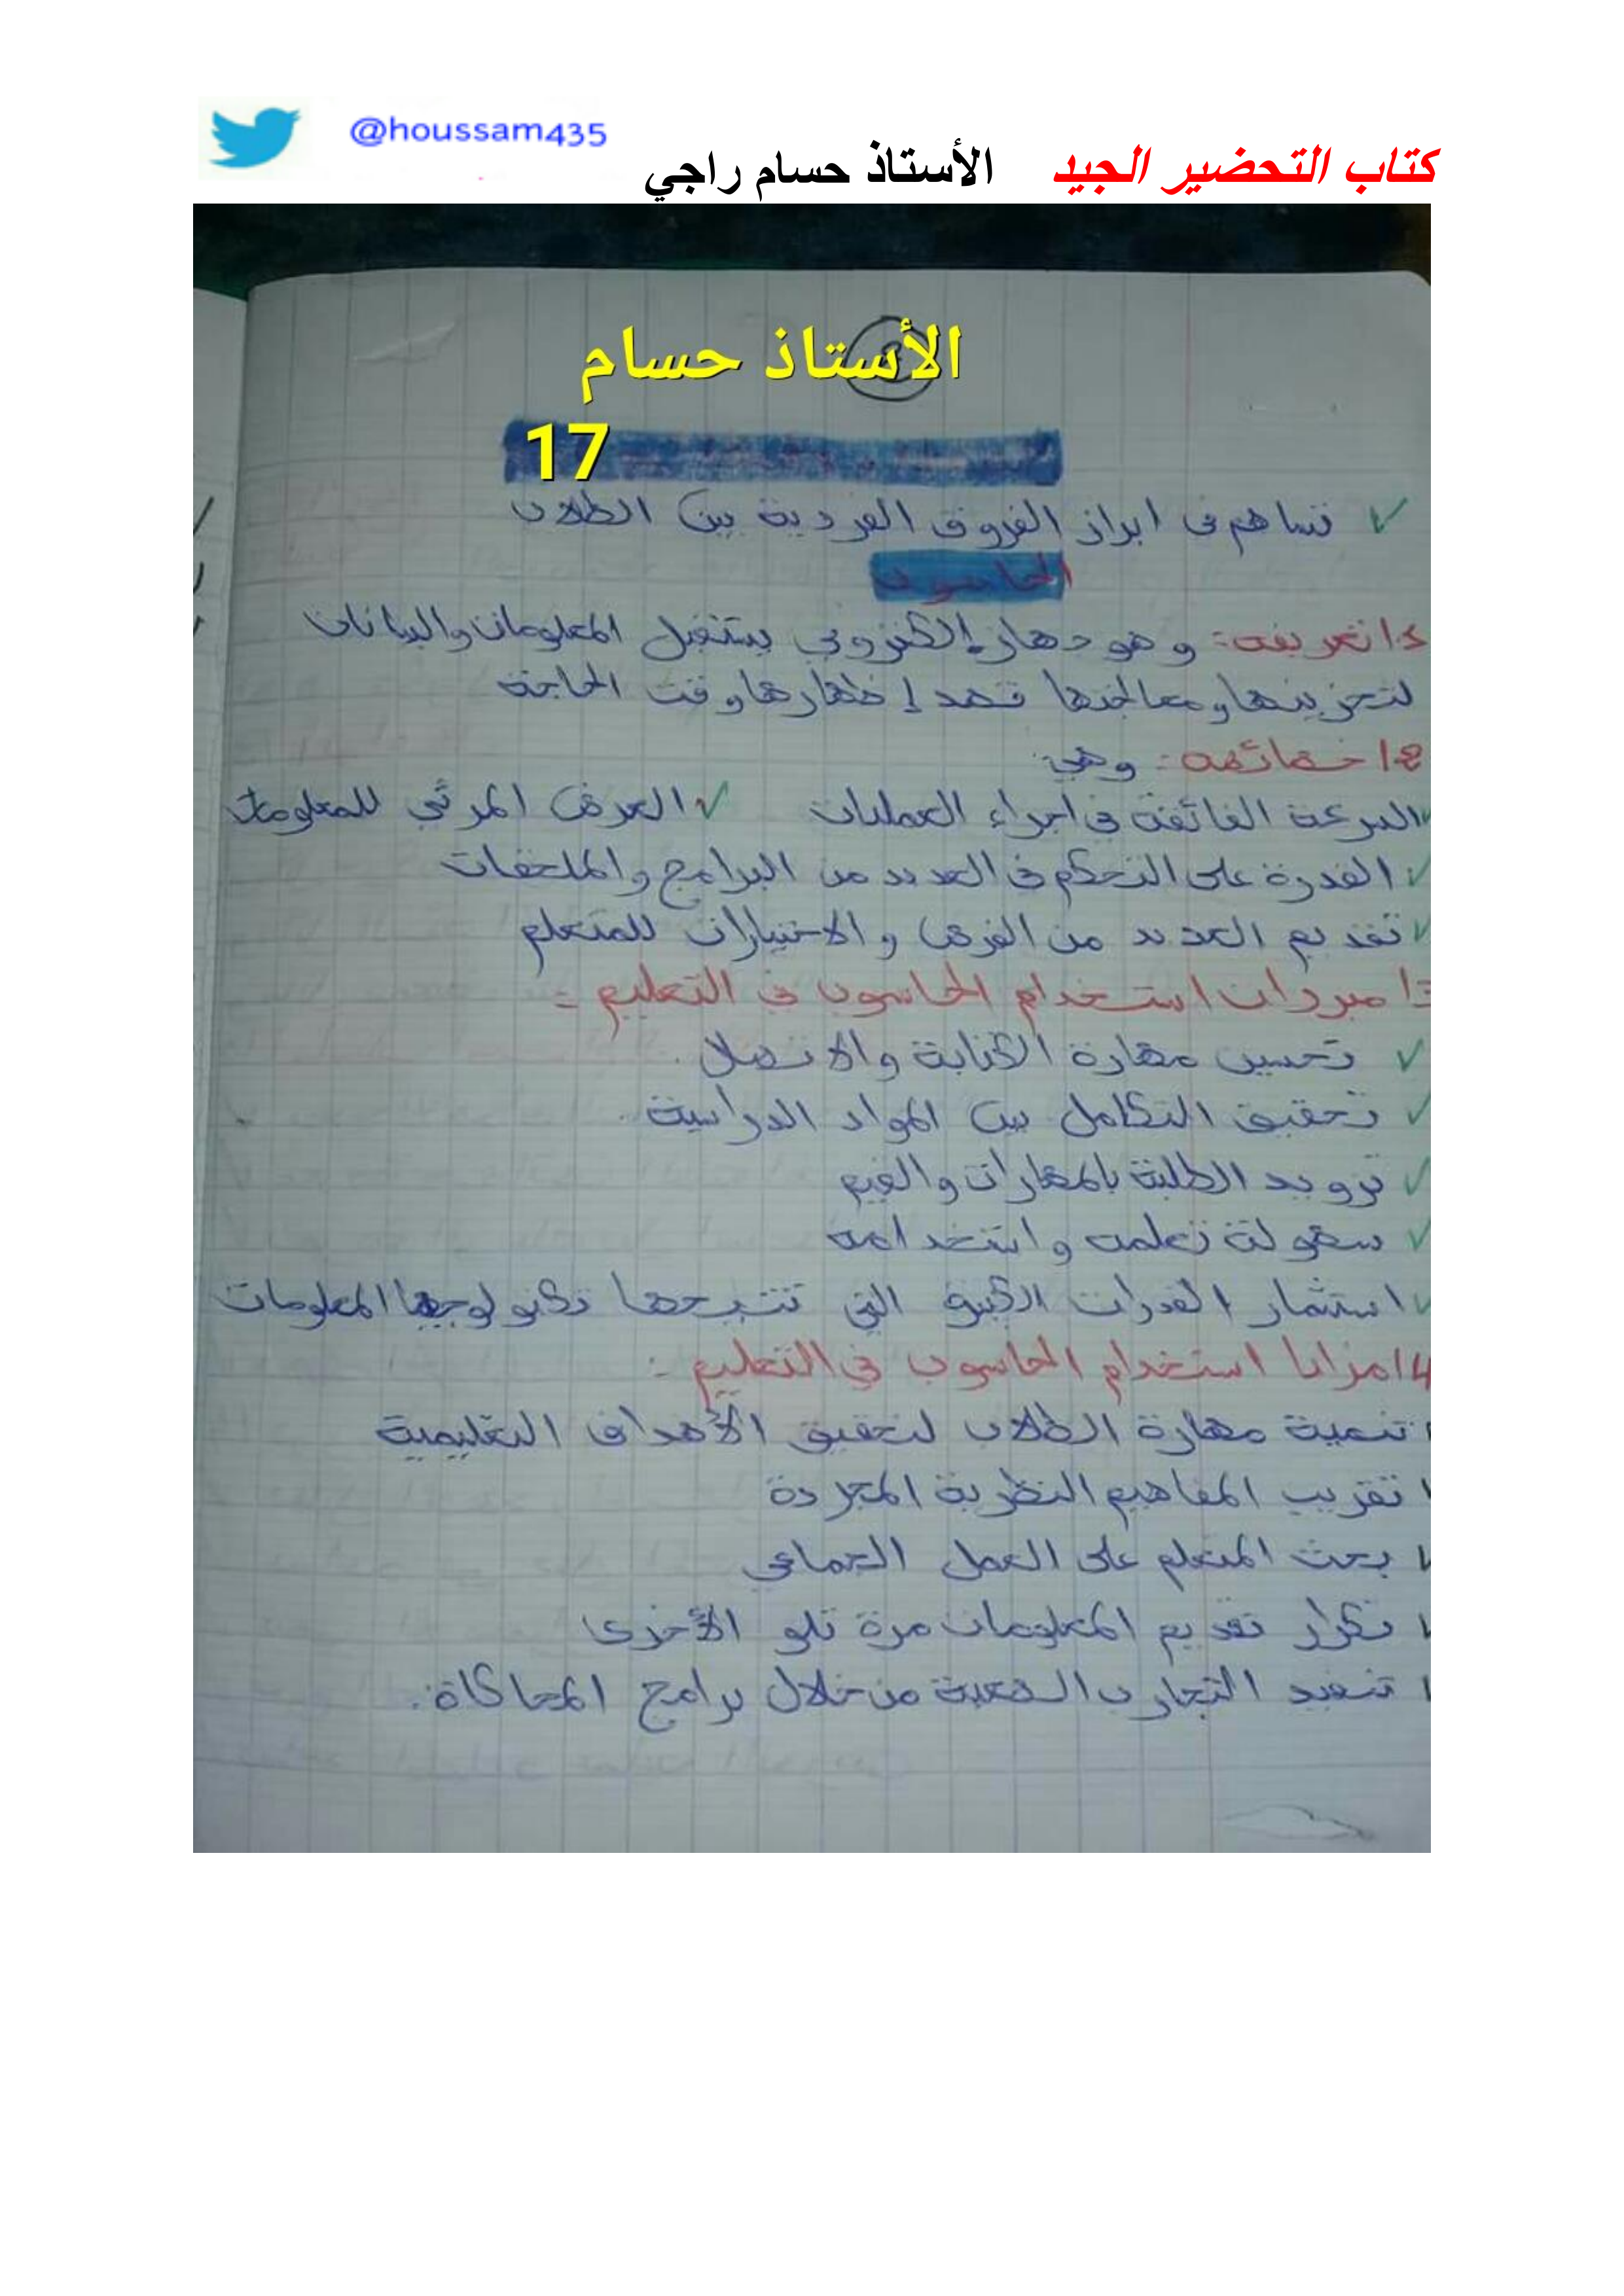 @houssam435
كتاب التحضير الجيد الأستاذ حسام راجي
الأستاذ حسام
17
✓ تساهم في ابراز الفروق الفردية بين الطلاب
الحاسوب
1/ تعريفه: وهو جهاز إلكتروني يستقبل المعلومات والبيانات
لتخزينها ومعالجتها قصد إظهارها وقت الحاجة
2/ خصائصه: وهي
✓ السرعة الفائقة في اجراء العمليات ✓ العرض المرئي للمعلومات
✓ القدرة على التحكم في العديد من البرامج والملحقات
✓ تقديم العديد من الفرص والاختيارات للمتعلم
3/ مبررات استخدام الحاسوب في التعليم:
✓ تحسين مهارة الكتابة والاتصال.
✓ تحقيق التكامل بين المواد الدراسية.
✓ تزويد الطلبة بالمهارات والقيم
✓ سهولة تعلمه واستخدامه
✓ استثمار القدرات الكبيرة التي تتيحها تكنولوجيا المعلومات
4/ مزايا استخدام الحاسوب في التعليم:
✓ تنمية مهارة الطلاب لتحقيق الأهداف التعليمية
✓ تقريب المفاهيم النظرية المجردة
✓ بحث المتعلم على العمل الجماعي
✓ تكرار تقديم المعلومات مرة تلو الأخرى
✓ تنفيذ التجارب الصعبة من خلال برامج المحاكاة.